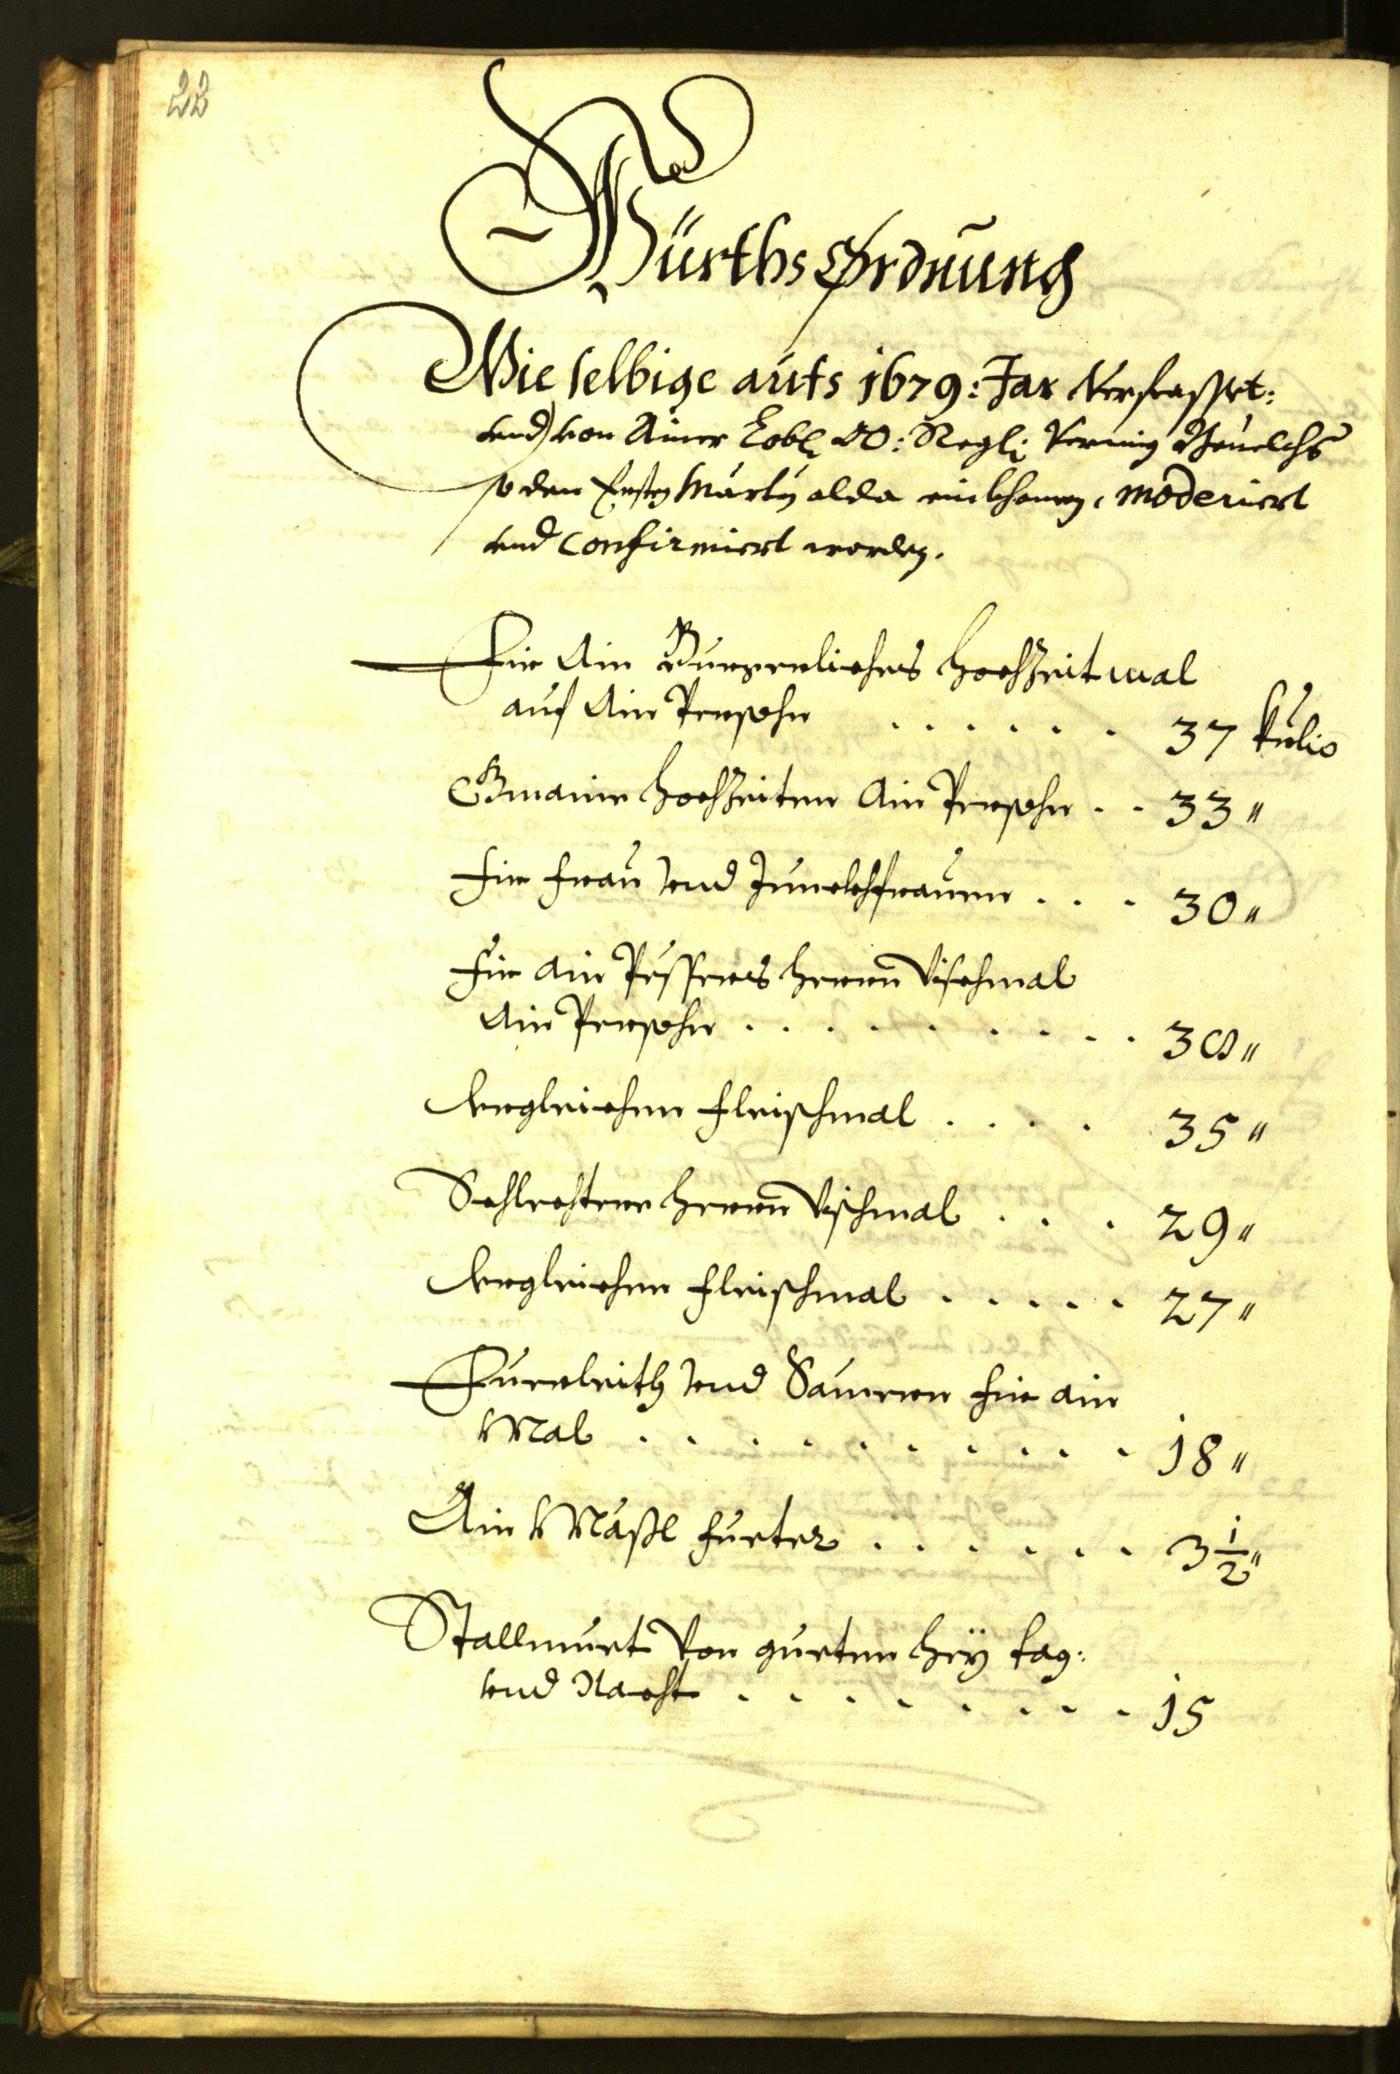 22
Würths Ordnung
Wie selbige aufs 1679: Jar Verfasset:
und von Ainer Lobl: OÖ: Regl: vermüg Beuelchs
so den Ersten Marty alda einkhomen, moderiert
und confirmiert worden.
Für Ain Burgerliches Hochzeitmal
auf Ain Persohn . . . . . . 37
Gmaine Hochzeiten Ain Persohn . . 33 "
Für Frau und Junckhfrauen . . . 30 "
Für ain Pesseres Herrn Vischmal
Ain Persohn . . . . . . . . . 38 "
dergleichen Fleischmal . . . . 35 "
Schlechtere Herrn Vischmal . . . 29 "
dergleichen Fleischmal . . . . . 27 "
Fuerleith und Sämmer für ain
Mal . . . . . . . . . . 18 "
Ain Mäßl Fueter . . . . . . 3 1/2 "
Stallmuet von guetem Hey tag:
und Nacht . . . . . . . . 15